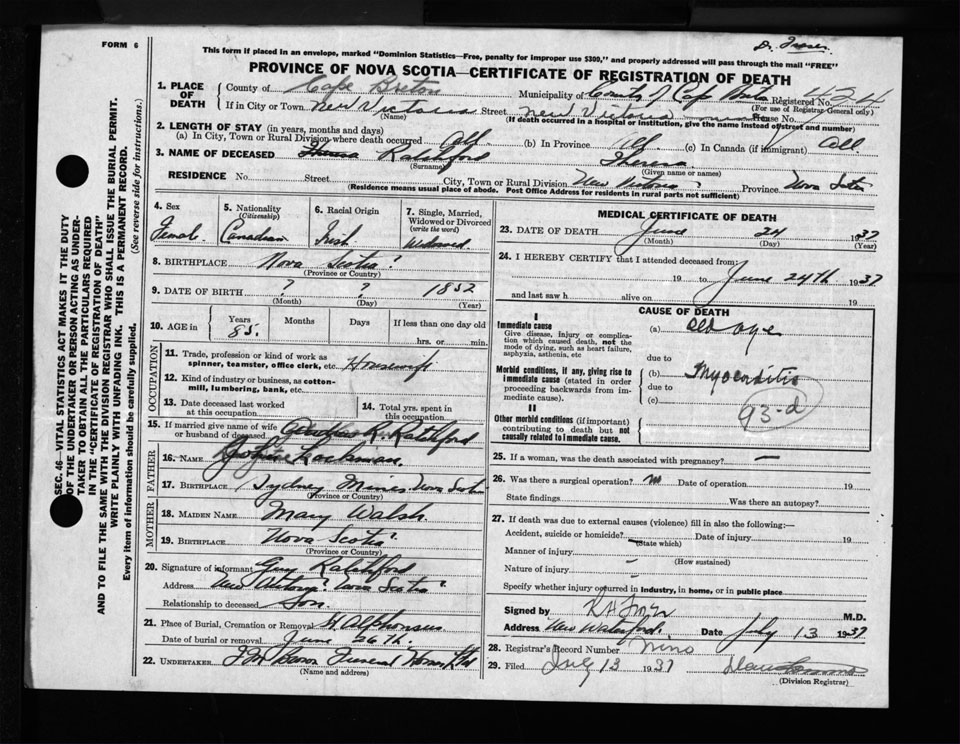 FORM 6
D. Fraser
This form if placed in an envelope, marked "Dominion Statistics—Free, penalty for improper use $300," and properly addressed will pass through the mail "FREE"
PROVINCE OF NOVA SCOTIA—CERTIFICATE OF REGISTRATION OF DEATH
1. PLACE OF DEATH
County of Cape Breton Municipality of County of Cape Breton Registered No.
(For use of Registrar General only)
If in City or Town New Victoria Street New Victoria House No.
(Name) (If death occurred in a hospital or institution, give the name instead of street and number)
2. LENGTH OF STAY (in years, months and days)
(a) In City, Town or Rural Division where death occurred All (b) In Province All (c) In Canada (if immigrant) All
3. NAME OF DECEASED Theresa Ratchford Theresa
(Surname) (Given name or names)
RESIDENCE No. Street City, Town or Rural Division New Victoria Province Nova Scotia
(Residence means usual place of abode. Post Office Address for residents in rural parts not sufficient)
4. Sex
Female
5. Nationality
(Citizenship)
Canadian
6. Racial Origin
Irish
7. Single, Married, Widowed or Divorced
(write the word)
Widowed
8. BIRTHPLACE Nova Scotia
(Province or Country)
9. DATE OF BIRTH ? ? 1852
(Month) (Day) (Year)
10. AGE in
Years Months Days If less than one day old
85. hrs. or min.
OCCUPATION
11. Trade, profession or kind of work as spinner, teamster, office clerk, etc. Housewife
12. Kind of industry or business, as cotton-mill, lumbering, bank, etc.
13. Date deceased last worked at this occupation
14. Total yrs. spent in this occupation
15. If married give name of wife or husband of deceased R. Ratchford
FATHER
16. NAME John
17. BIRTHPLACE Sydney Mines Nova Scotia
(Province or Country)
MOTHER
18. MAIDEN NAME Mary Walsh
19. BIRTHPLACE Nova Scotia
(Province or Country)
20. Signature of informant Guy Ratchford
Address New Victoria Nova Scotia
Relationship to deceased Son
21. Place of Burial, Cremation or Removal St Alphonsus
Date of burial or removal June 26th.
22. UNDERTAKER Funeral Home Ltd
(Name and address)
MEDICAL CERTIFICATE OF DEATH
23. DATE OF DEATH June 24 1937
(Month) (Day) (Year)
24. I HEREBY CERTIFY that I attended deceased from:
19 to June 24th 1937
and last saw h alive on 19
CAUSE OF DEATH
I
Immediate cause
Give disease, injury or complication which caused death, not the mode of dying, such as heart failure, asphyxia, asthenia, etc
(a) Old age
due to
Morbid conditions, if any, giving rise to immediate cause (stated in order proceeding backwards from immediate cause).
Myocarditis
due to
(c)
93-d
II
Other morbid conditions (if important) contributing to death but not causally related to immediate cause.
25. If a woman, was the death associated with pregnancy? —
26. Was there a surgical operation? no Date of operation 19
State findings Was there an autopsy?
27. If death was due to external causes (violence) fill in also the following:—
Accident, suicide or homicide? — Date of injury 19
(State which)
Manner of injury —
(How sustained)
Nature of injury —
Specify whether injury occurred in Industry, in home, or in public place
Signed by M.D.
Address New Waterford. Date July 13 1937
28. Registrar's Record Number Nine
29. Filed July 13 1937
(Division Registrar)
SEC. 46—VITAL STATISTICS ACT MAKES IT THE DUTY
OF THE UNDERTAKER OR PERSON ACTING AS UNDER-
TAKER TO OBTAIN ALL THE PARTICULARS REQUIRED
IN THE "CERTIFICATE OF REGISTRATION OF DEATH"
AND TO FILE THE SAME WITH THE DIVISION REGISTRAR WHO SHALL ISSUE THE BURIAL PERMIT.
WRITE PLAINLY WITH UNFADING INK. THIS IS A PERMANENT RECORD.
Every item of information should be carefully supplied. (See reverse side for instructions.)